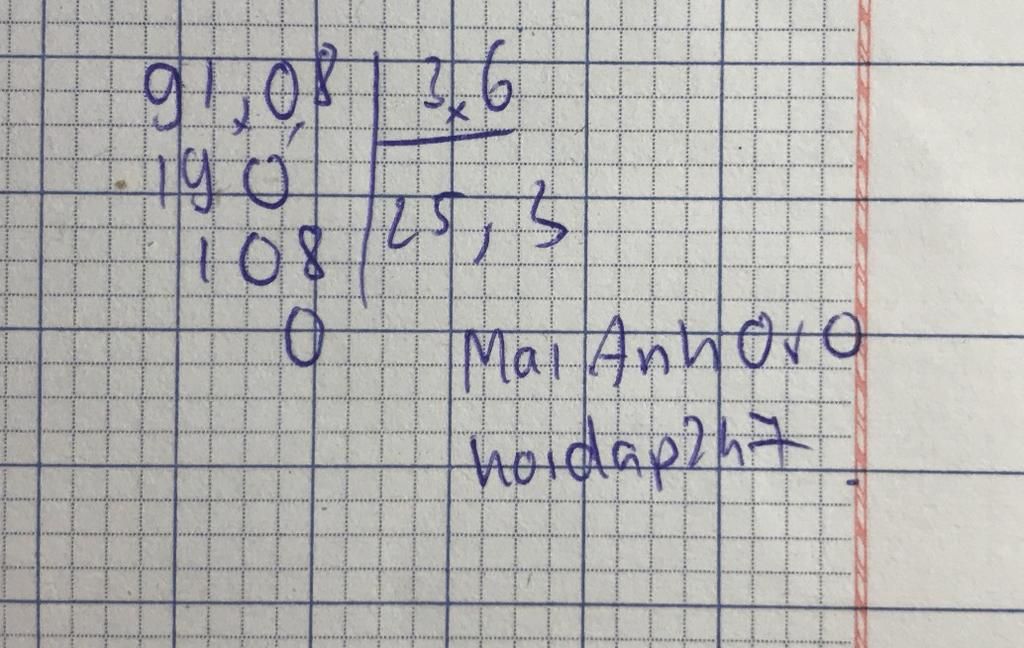 91,08 | 3,6
190
25,3
108
0
Mai Anh OvO
hoidap247